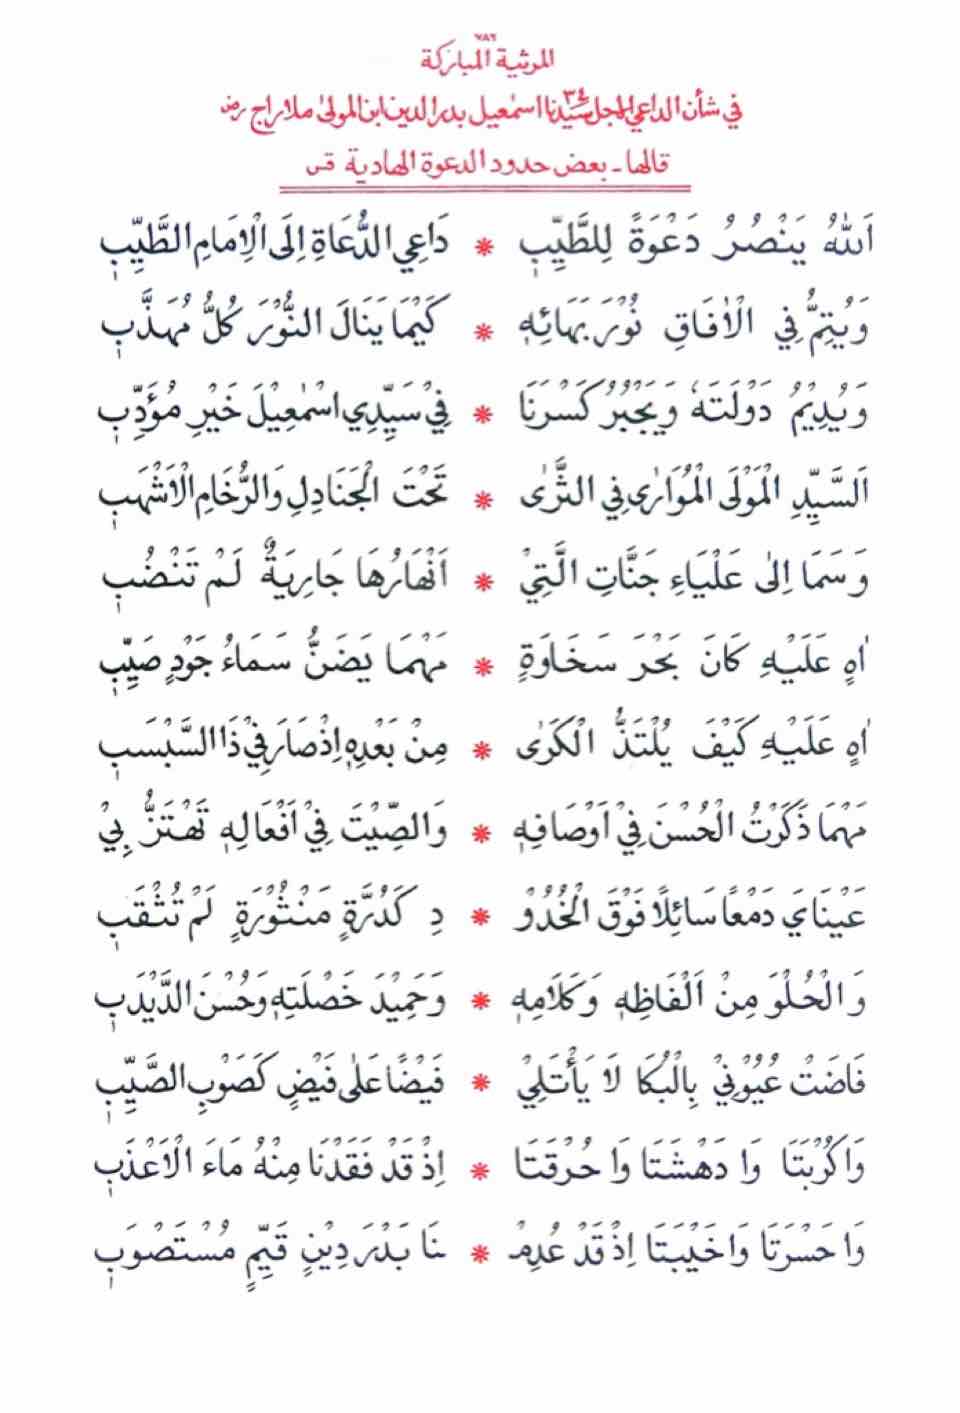 ٧٨٦
المرثية المباركة
في شأن الداعي الاجل سيدنا اسمٰعيل بدر الدين ابن المولىٰ ملا راج رض ٣٤
قالها ـ بعض حدود الدعوة الهادية قس
اَللهُ يَنْصُرُ دَعْوَةً لِلطَّيِّبِ * دَاعِي الدُّعَاةِ اِلَى الْاِمَامِ الطَّيِّبِ
وَيُتِمُّ فِي الْاٰفَاقِ نُوْرَ بَهَائِهٖ * كَيْمَا يَنَالَ النُّوْرَ كُلُّ مُهَذَّبِ
وَيُدِيْمُ دَوْلَتَهٗ وَيَجْبُرُ كَسْرَنَا * فِيْ سَيِّدِي اسْمٰعِيْلَ خَيْرِ مُؤَدِّبِ
اَلسَّيِّدِ الْمَوْلَى الْمُوَارٰى فِي الثَّرٰى * تَحْتَ الْجَنَادِلِ وَالرُّخَامِ الْاَشْهَبِ
وَسَمَا اِلىٰ عَلْيَاءِ جَنَّاتِ الَّتِيْ * اَنْهَارُهَا جَارِيَةٌ لَمْ تَنْضُبِ
اٰهٍ عَلَيْهِ كَانَ بَحْرَ سَخَاوَةٍ * مَهْمَا يَضَنُّ سَمَاءُ جَوْدٍ صَيِّبِ
اٰهٍ عَلَيْهِ كَيْفَ يُلْتَذُّ الْكَرٰى * مِنْ بَعْدِهٖ اِذْ صَارَ فِيْ ذَا السَّبْسَبِ
مَهْمَا ذَكَرْتُ الْحُسْنَ فِيْ اَوْصَافِهٖ * وَالصِّيْتَ فِيْ اَفْعَالِهٖ تَهْتَزُّ بِيْ
عَيْنَايَ دَمْعًا سَائِلًا فَوْقَ الْخُدُوْ * دِ كَدُرَّةٍ مَنْثُوْرَةٍ لَمْ تُثْقَبِ
وَالْحُلْوَ مِنْ اَلْفَاظِهٖ وَكَلَامِهٖ * وَحَمِيْدَ خَصْلَتِهٖ وَحُسْنَ الدَّيْدَبِ
فَاضَتْ عُيُوْنِيْ بِالْبُكَا لَا يَأْتَلِيْ * فَيْضًا عَلٰى فَيْضٍ كَصَوْبِ الصَّيِّبِ
وَاكُرْبَتَا وَا دَهْشَتَا وَا حُرْقَتَا * اِذْ قَدْ فَقَدْنَا مِنْهُ مَاءَ الْاَعْذَبِ
وَا حَسْرَتَا وَاخَيْبَتَا اِذْ قَدْ عُدِمْـ * ـنَا بَدْرَ دِيْنٍ قَيِّمٍ مُسْتَصْوَبِ